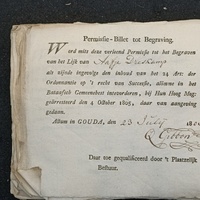 Permissie-Billet tot Begraving.
Word mits deze verleend Permissie tot het Begraven
van het Lijk van Aagje
als zijnde ingevolge den inhoud van het 24 Art: der
Ordonnantie op 't recht van Successie, alleen in het
Bataafsch Gemeenebest intevorderen, bij Hun Hoog Mog:
gearresteerd den 4 October 1805, daar van aangeving
gedaan.
Actum in GOUDA, den 23 July 180
Daar toe gequalificeerd door 't Plaatselijk
Bestuur.